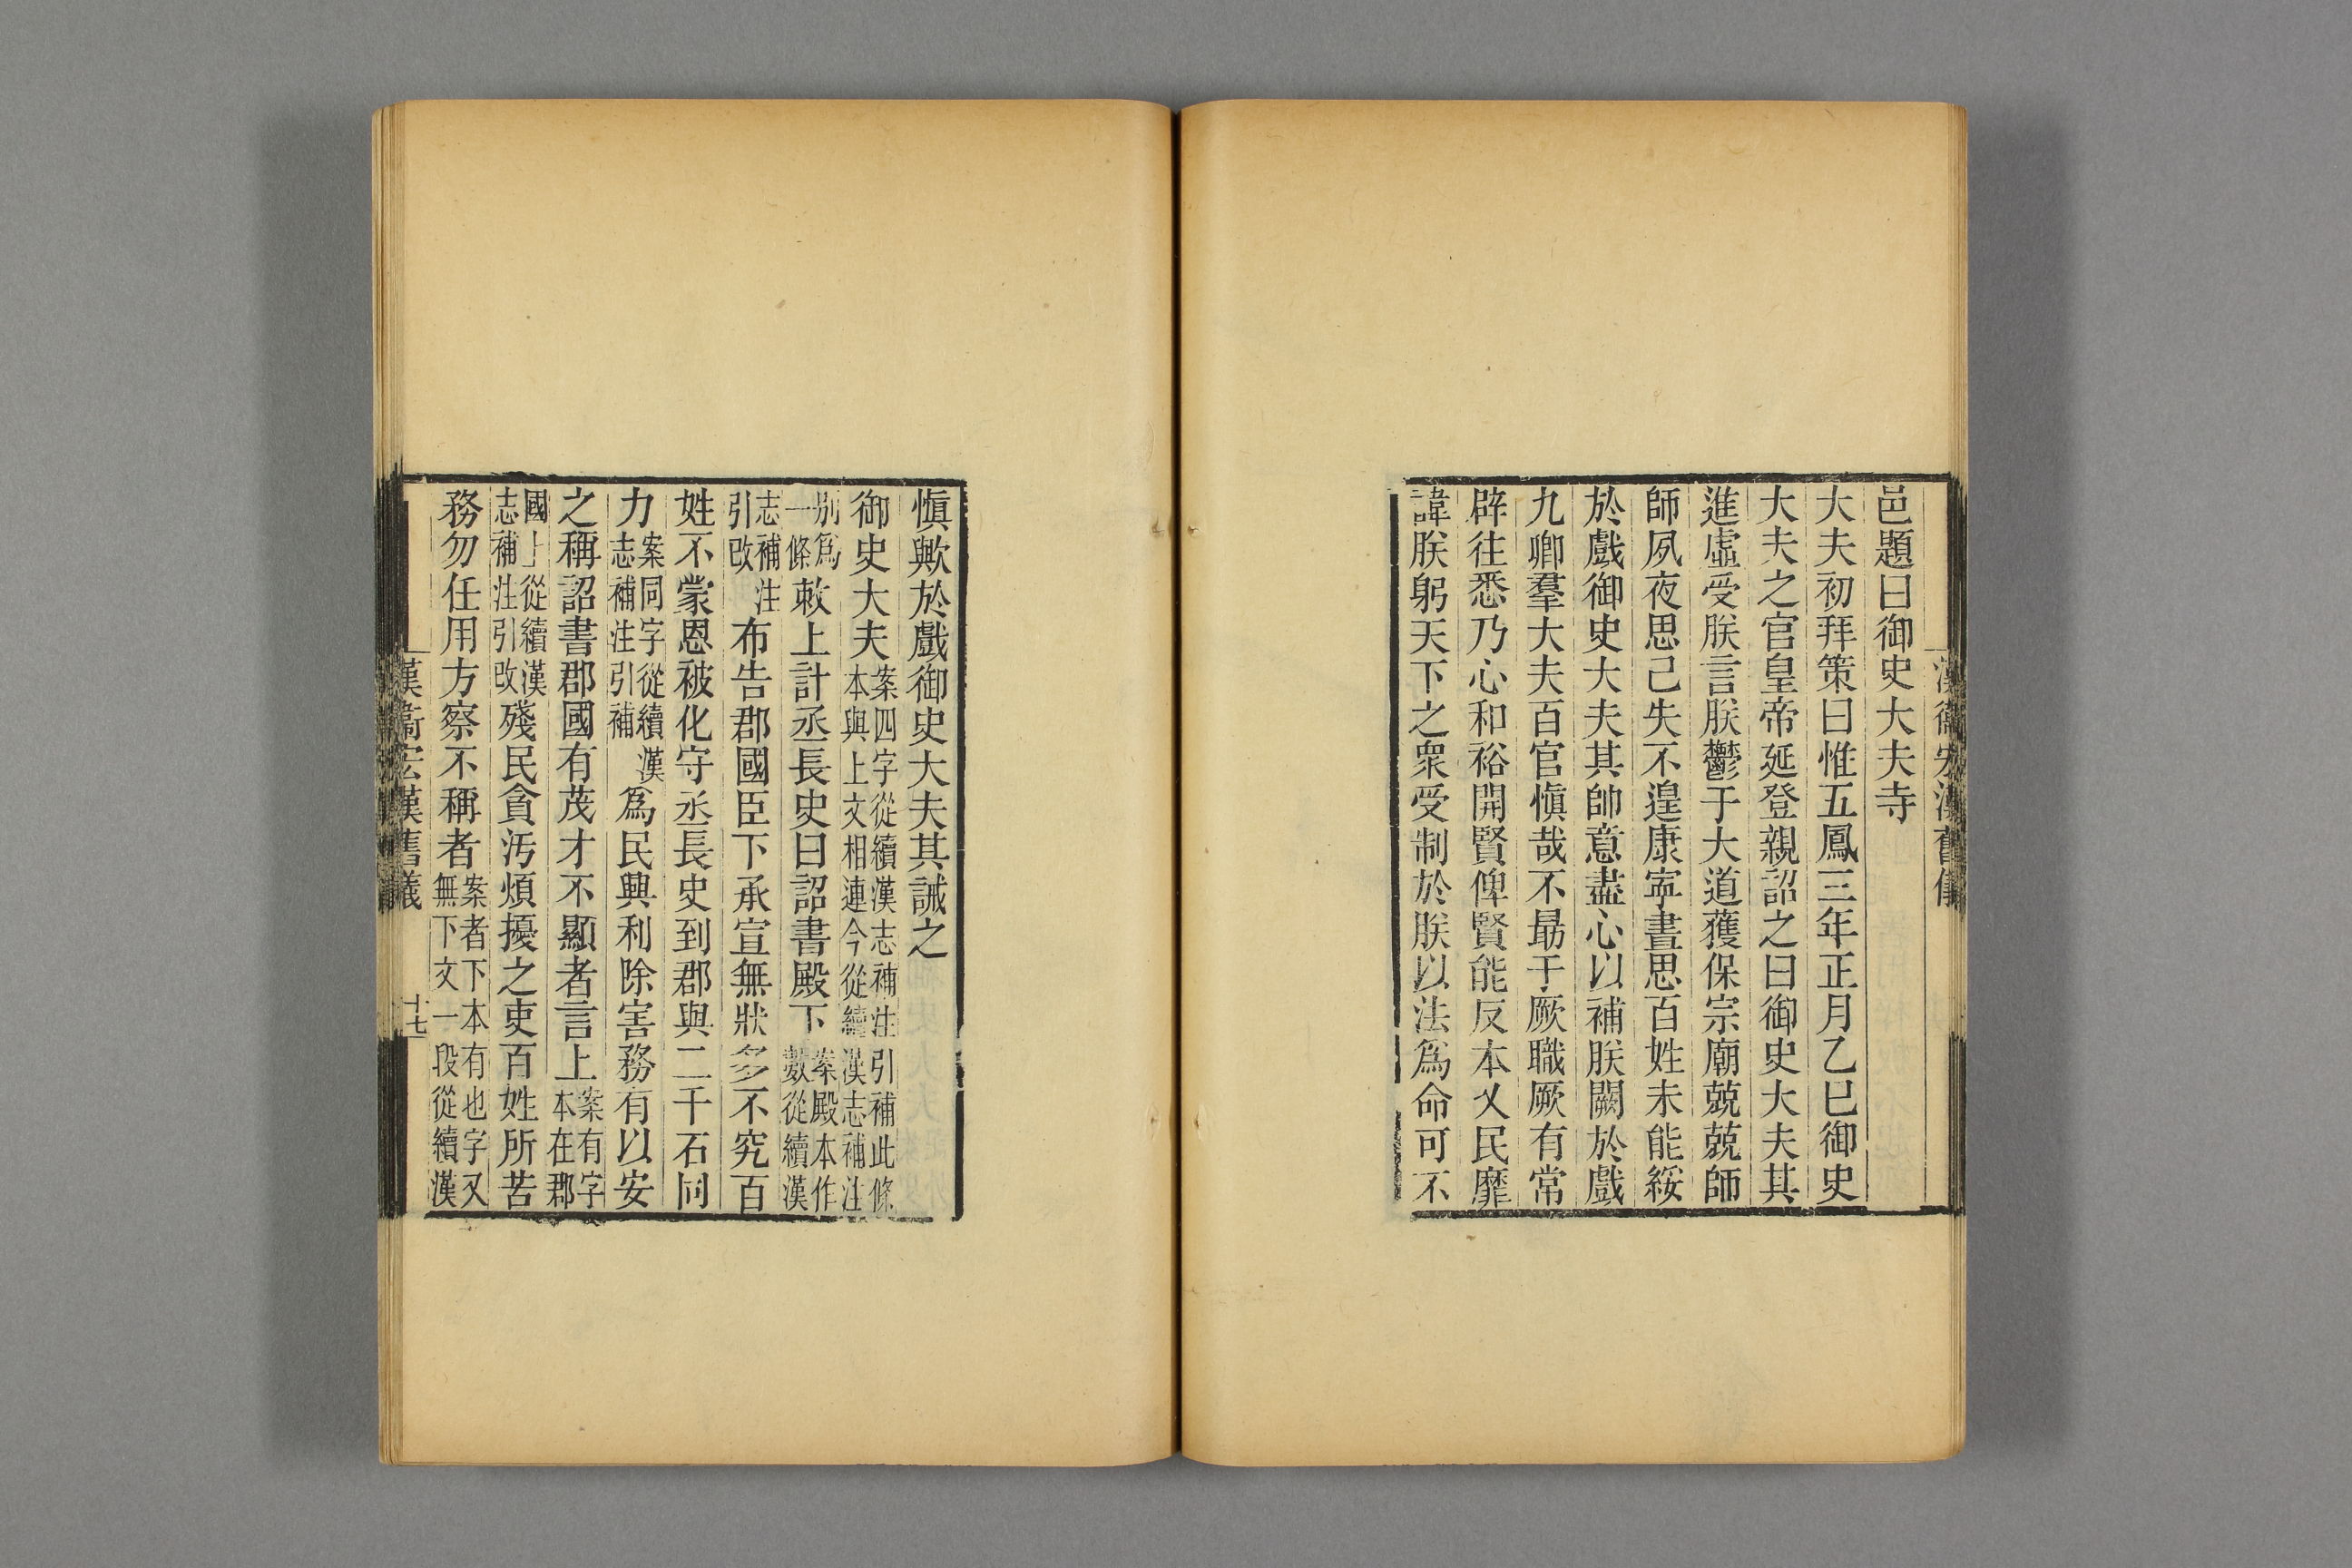 漢衞宏漢舊儀
邑題曰御史大夫寺
大夫初拜策曰惟五鳳三年正月乙巳御史
大夫之官皇帝延登親詔之曰御史大夫其
進虛受朕言朕鬱于大道獲保宗廟兢兢師
師夙夜思己失不遑康寜晝思百姓未能綏
於戲御史大夫其帥意盡心以補朕闕於戲
九卿羣大夫百官愼哉不勗于厥職厥有常
辟往悉乃心和裕開賢俾賢能反本乂民靡
諱朕躬天下之衆受制於朕以法爲命可不
愼歟於戲御史大夫其誡之
御史大夫案四字從續漢志補注引補此條本與上文相連今從續漢志補注
別爲一條敕上計丞長史曰詔書殿下案殿本作數從續漢
志補注引改布告郡國臣下承宣無狀多不究百
姓不蒙恩被化守丞長史到郡與二千石同
力案同字從續漢志補注引補爲民興利除害務有以安
之稱詔書郡國有茂才不顯者言上案有字本在郡
國上從續漢志補注引改殘民貪汚煩擾之吏百姓所苦
務勿任用方察不稱者案者下本有也字又無下文一段從續漢
漢衞宏漢舊儀
十七